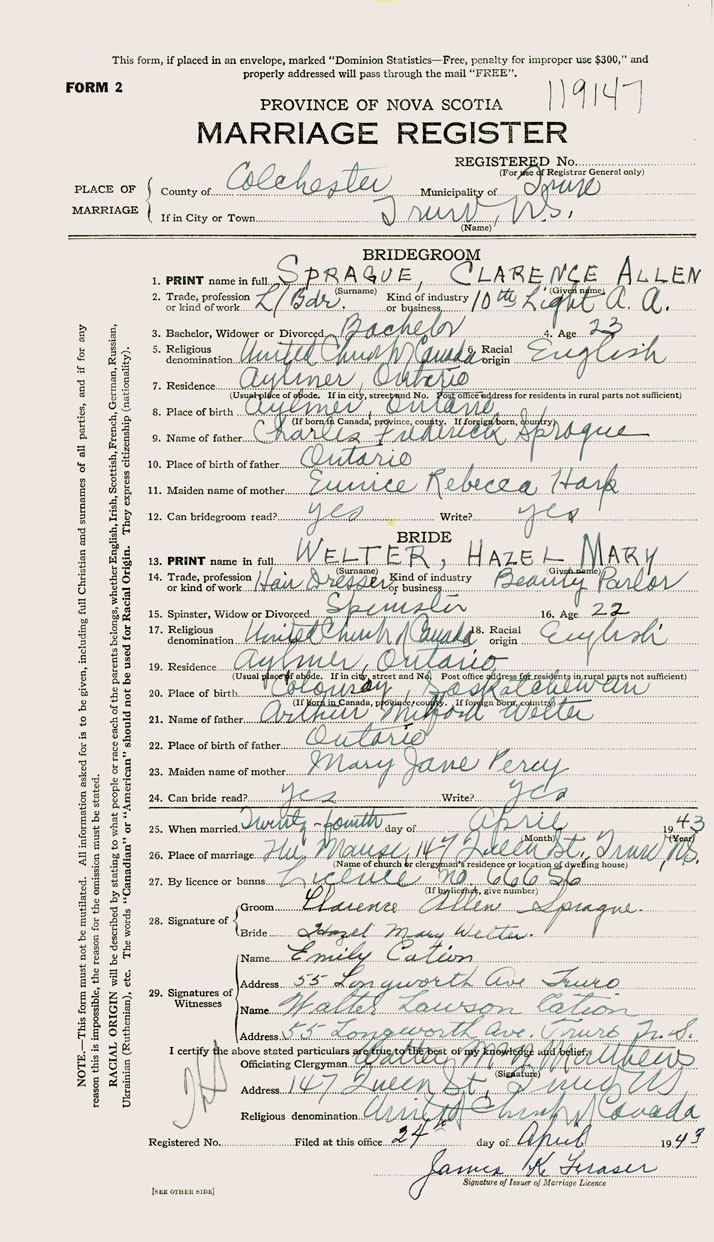 This form, if placed in an envelope, marked "Dominion Statistics—Free, penalty for improper use $300," and
properly addressed will pass through the mail "FREE".
FORM 2
119147
PROVINCE OF NOVA SCOTIA
MARRIAGE REGISTER
REGISTERED No.
(For use of Registrar General only)
PLACE OF MARRIAGE
County of Colchester Municipality of Truro
If in City or Town Truro, N.S.
(Name)
BRIDEGROOM
1. PRINT name in full SPRAGUE, CLARENCE ALLEN
(Surname) (Given name)
2. Trade, profession or kind of work L/Bdr. Kind of industry or business 10th Light A. A.
3. Bachelor, Widower or Divorced Bachelor 4. Age 23
5. Religious denomination United Church of Canada Racial origin English
7. Residence Aylmer, Ontario
(Usual place of abode. If in city, street and No. Post office address for residents in rural parts not sufficient)
8. Place of birth Aylmer, Ontario
(If born in Canada, province, county. If foreign born, country)
9. Name of father Charles Frederick Sprague
10. Place of birth of father Ontario
11. Maiden name of mother Eunice Rebecca Harp
12. Can bridegroom read? yes Write? yes
BRIDE
13. PRINT name in full WELTER, HAZEL MARY
(Surname) (Given name)
14. Trade, profession or kind of work Hair Dresser Kind of industry or business Beauty Parlor
15. Spinster, Widow or Divorced Spinster 16. Age 22
17. Religious denomination United Church of Canada 18. Racial origin English
19. Residence Aylmer, Ontario
(Usual place of abode. If in city, street and No. Post office address for residents in rural parts not sufficient)
20. Place of birth Colonsay, Saskatchewan
(If born in Canada, province, county. If foreign born, country)
21. Name of father Arthur Milford Welter
22. Place of birth of father Ontario
23. Maiden name of mother Mary Jane Percy
24. Can bride read? yes Write? yes
25. When married Twenty-fourth day of April 1943
(Month) (Year)
26. Place of marriage The Manse, 147 Queen St., Truro, N.S.
(Name of church or clergyman's residence or location of dwelling house)
27. By licence or banns Licence no. 66656
(If by licence, give number)
28. Signature of
Groom Clarence Allen Sprague.
Bride Hazel Mary Welter.
29. Signatures of Witnesses
Name Emily Cation
Address 55 Longworth Ave Truro
Name Walter Lawson Cation
Address 55 Longworth Ave. Truro N.S.
I certify the above stated particulars are true to the best of my knowledge and belief.
Officiating Clergyman Walter Matthews
(Signature)
Address 147 Queen St., Truro NS
Religious denomination United Church of Canada
Registered No. Filed at this office 24th day of April 1943
James K Fraser
Signature of Issuer of Marriage Licence
[SEE OTHER SIDE]
NOTE.—This form must not be mutilated. All information asked for is to be given, including full Christian and surnames of all parties, and if for any
reason this is impossible, the reason for the omission must be stated.
RACIAL ORIGIN will be described by stating to what people or race each of the parents belongs, whether English, Irish, Scottish, French, German, Russian,
Ukrainian (Ruthenian), etc. The words "Canadian" or "American" should not be used for Racial Origin. They express citizenship (nationality).